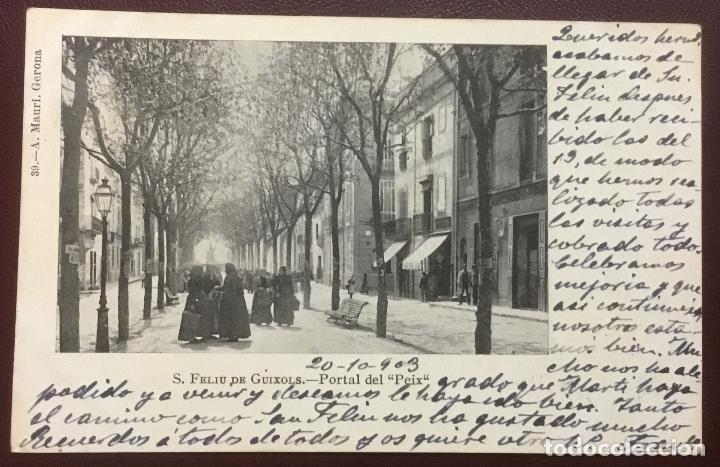 39.—A. Mauri. Gerona
S. FELIU DE GUIXOLS.—Portal del "Peix"
20-10-903
Queridos herm.
acabamos de
llegar de Sn.
Feliu despues
de haber reci-
bido las del
19, de modo
que hemos rea-
lizado todas
las visitas y
cobrado todo.
Celebramos
mejoria y que
asi continue
nosotros esta-
mos bien. Mu-
cho nos ha ale-
grado que Marti haya
podido ya venir y deseamos le haya ido bien. Tanto
el camino como San Feliu nos ha gustado mucho
Recuerdos á todos de todos y os quiere